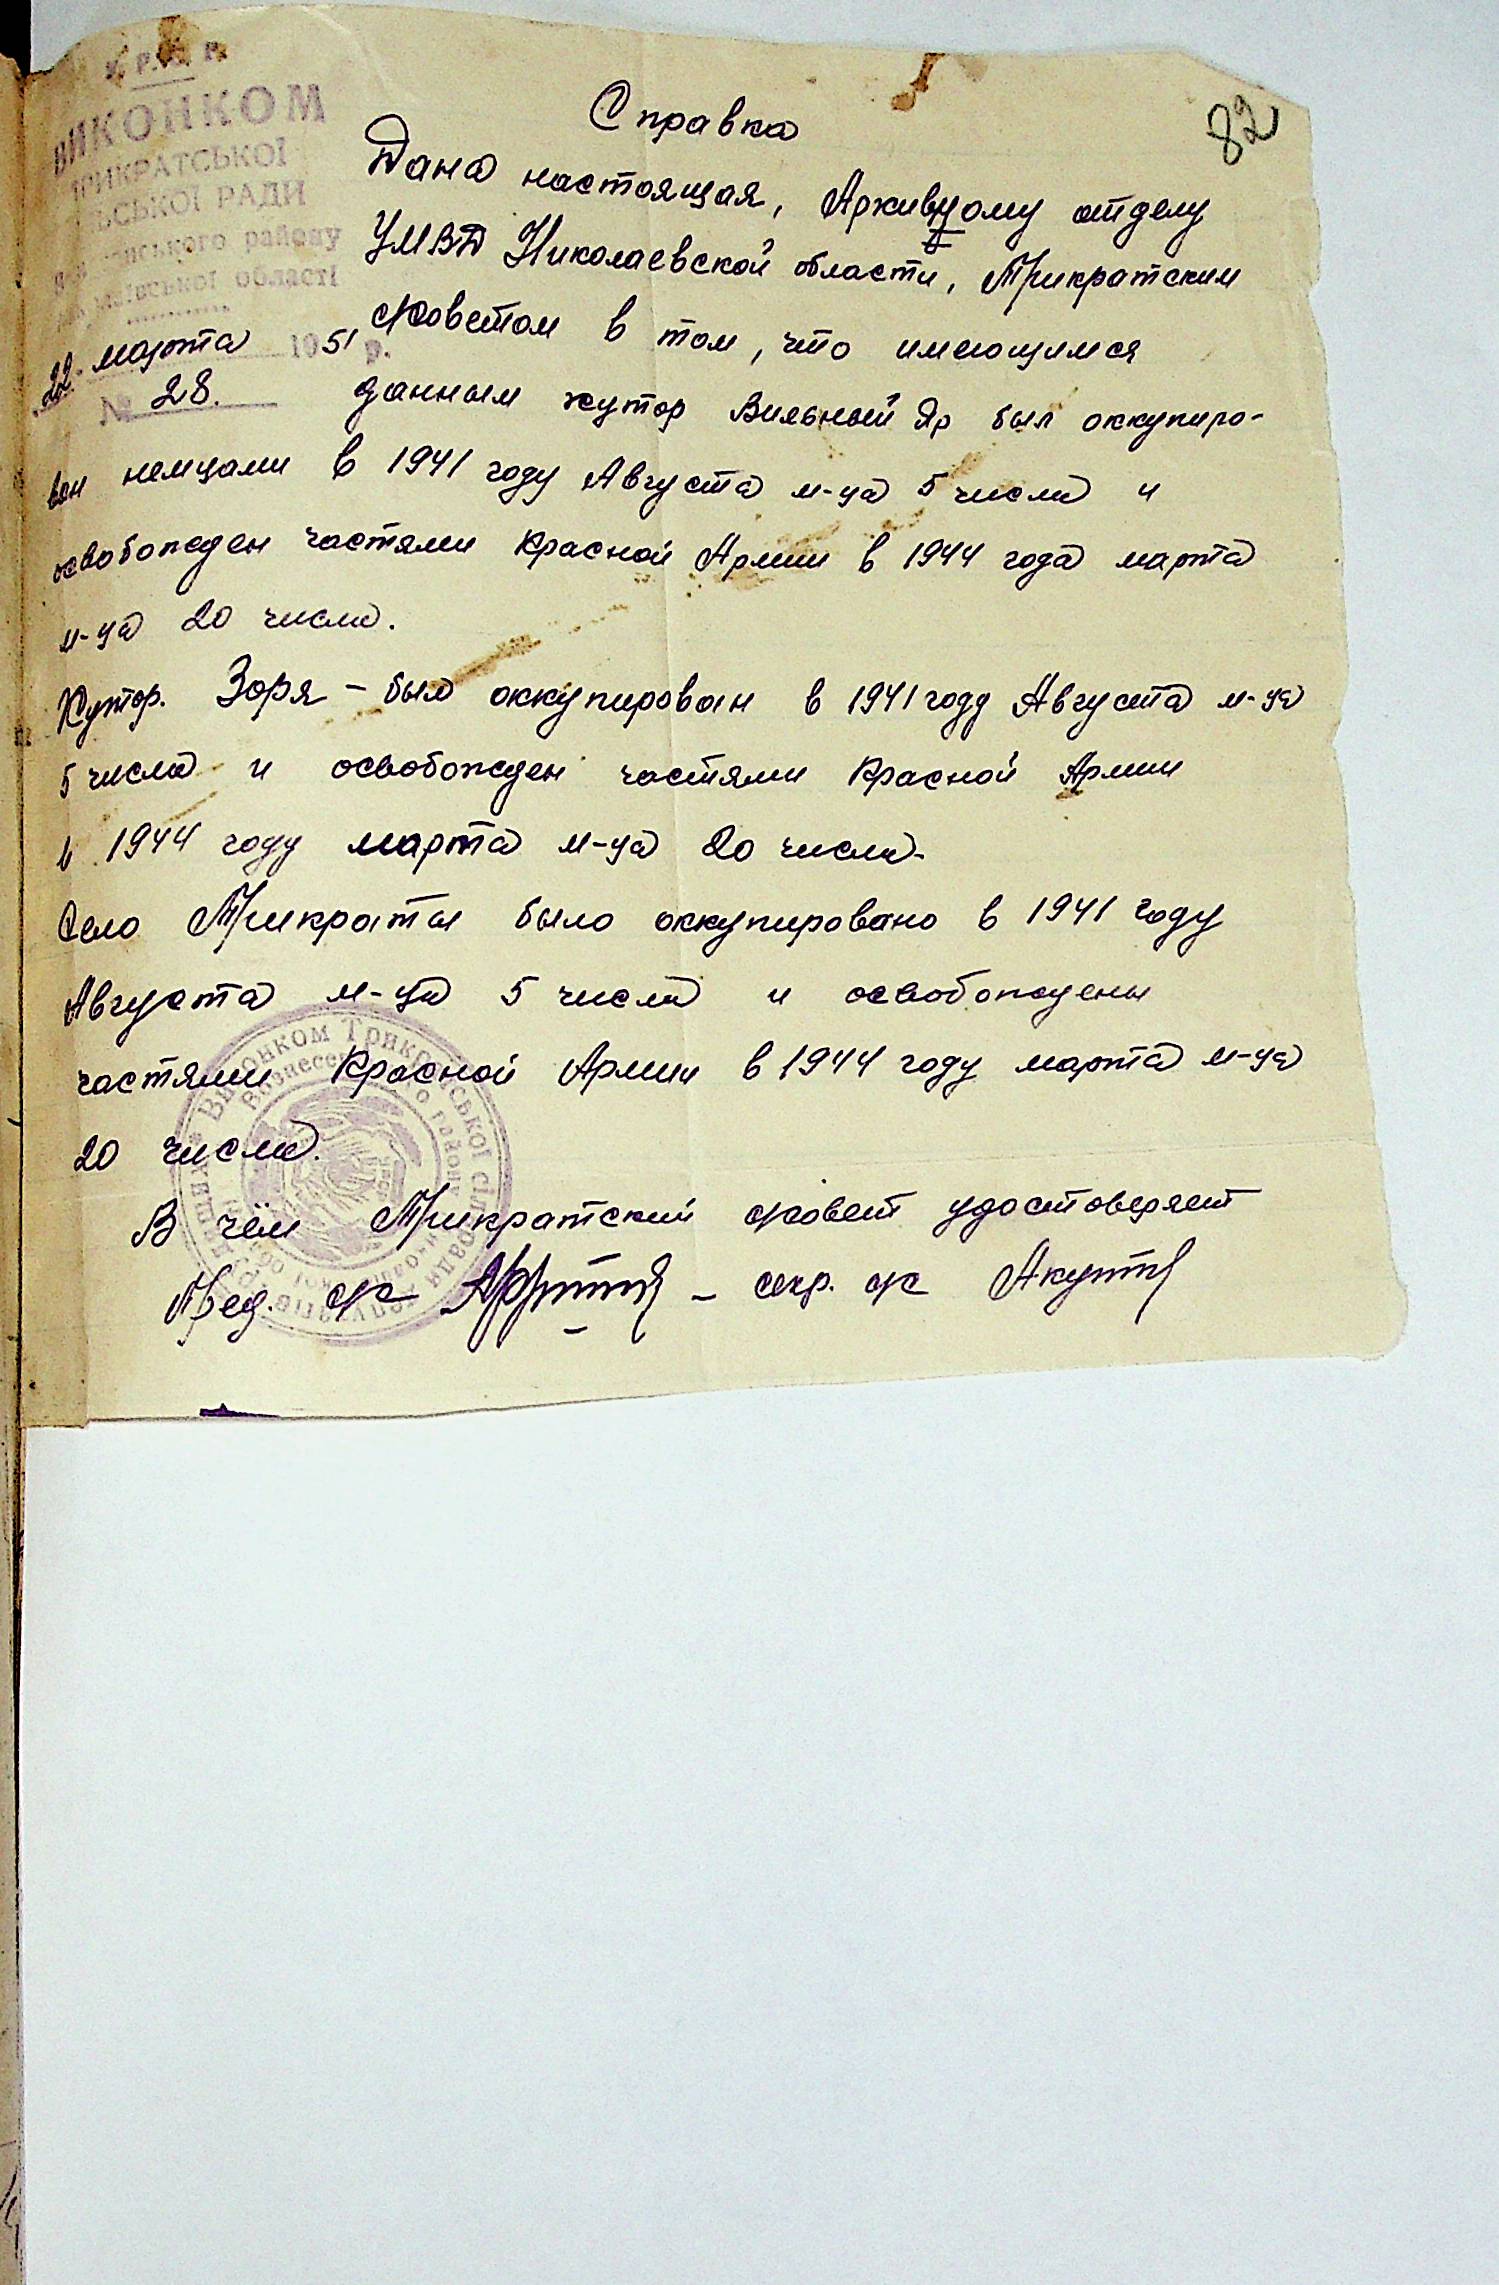 82
У. Р. С. Р.
ВИКОНКОМ
ТРИКРАТСЬКОЇ
СІЛЬСЬКОЇ РАДИ
району
області
22 марта 1951 р.
№ 28.
Справка
Дана настоящая, Архивному отделу
УМВД Николаевской области, Трикратским
с/советом в том, что имеющимся
данным хутор Вильный Яр был оккупиро-
ван немцами в 1941 году Августа м-ца 5 числа и
освобожден частями Красной Армии в 1944 года марта
м-ца 20 числа.
Хутор. Зоря – был оккупирован в 1941 году Августа м-ца
5 числа и освобожден частями Красной Армии
в 1944 году марта м-ца 20 числа.
Село Трикраты было оккупировано в 1941 году
Августа м-ца 5 числа и освобождены
частями Красной Армии в 1944 году марта м-ца
20 числа.
В чём Трикратский с/совет удостоверяет
Пред. с/с – секр. с/с
Виконком Трикратської сільради депутатів трудящих